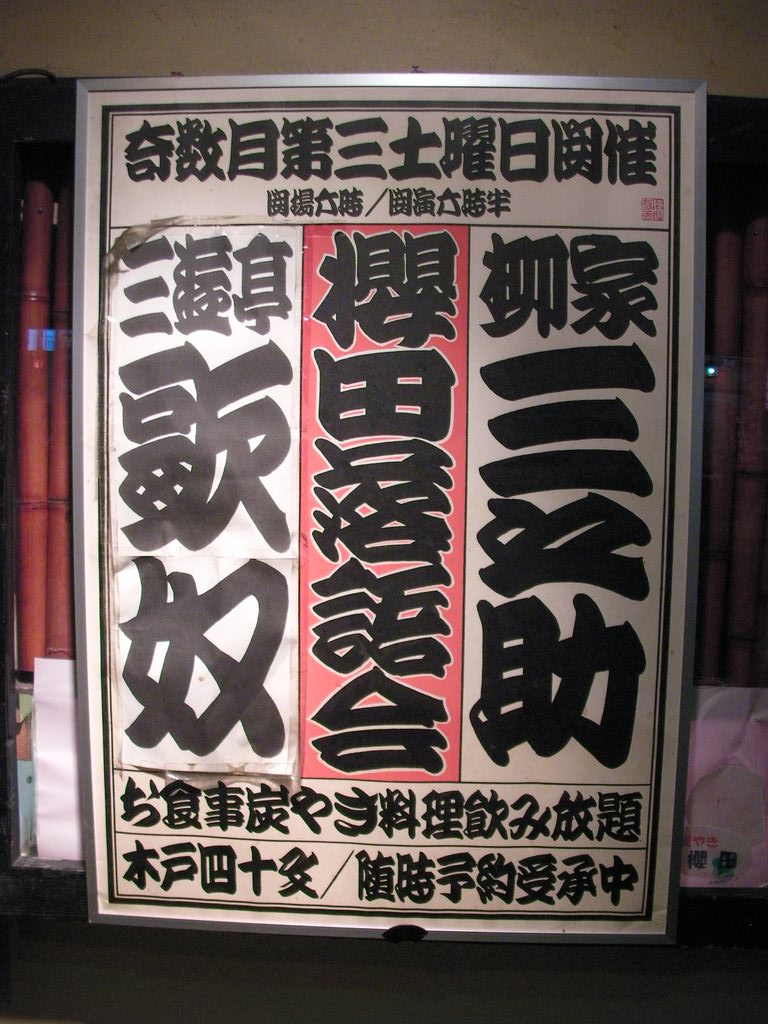 奇数月第三土曜日開催
開場六時／開演六時半
柳家
三之助
櫻田落語会
三遊亭
歌奴
お食事炭やき料理飲み放題
木戸四十文／随時予約受承中
やき
櫻田